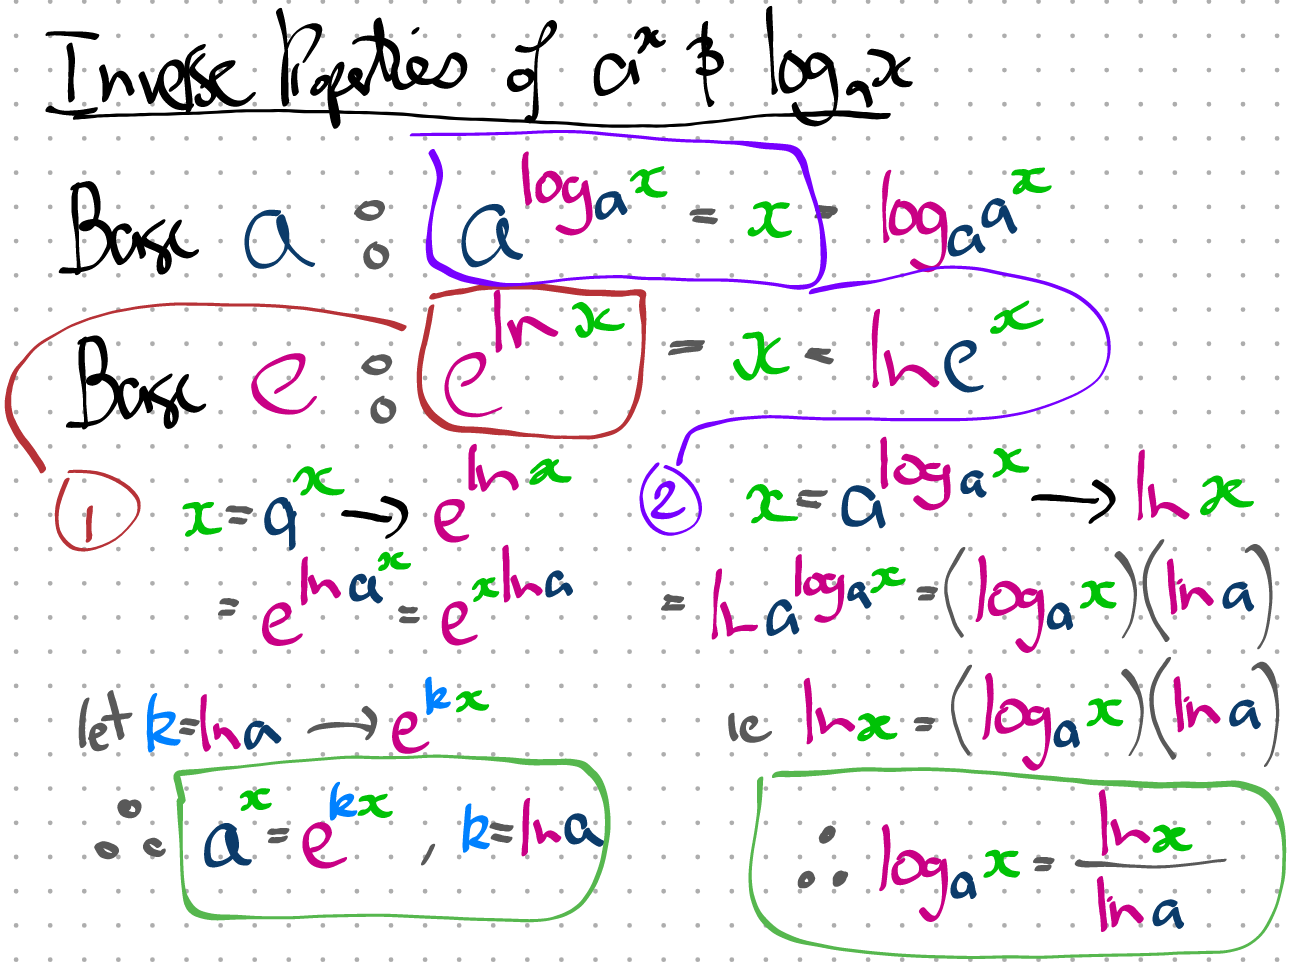 Inverse Properties of a^x & log_a x
Base a : a^(log_a x) = x = log_a a^x
Base e : e^(ln x) = x = ln e^x
① x = a^x → e^(ln x)
= e^(ln a^x) = e^(x ln a)
let k = ln a → e^(kx)
∴ a^x = e^(kx) , k = ln a
② x = a^(log_a x) → ln x
= ln a^(log_a x) = (log_a x)(ln a)
ie ln x = (log_a x)(ln a)
∴ log_a x = ln x / ln a